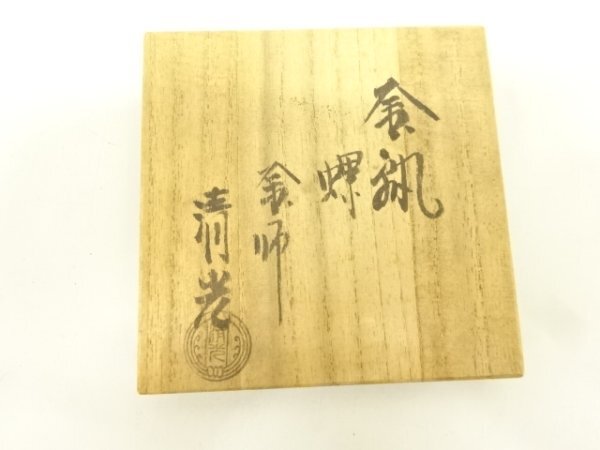 釜釻
螺
釜師
清光